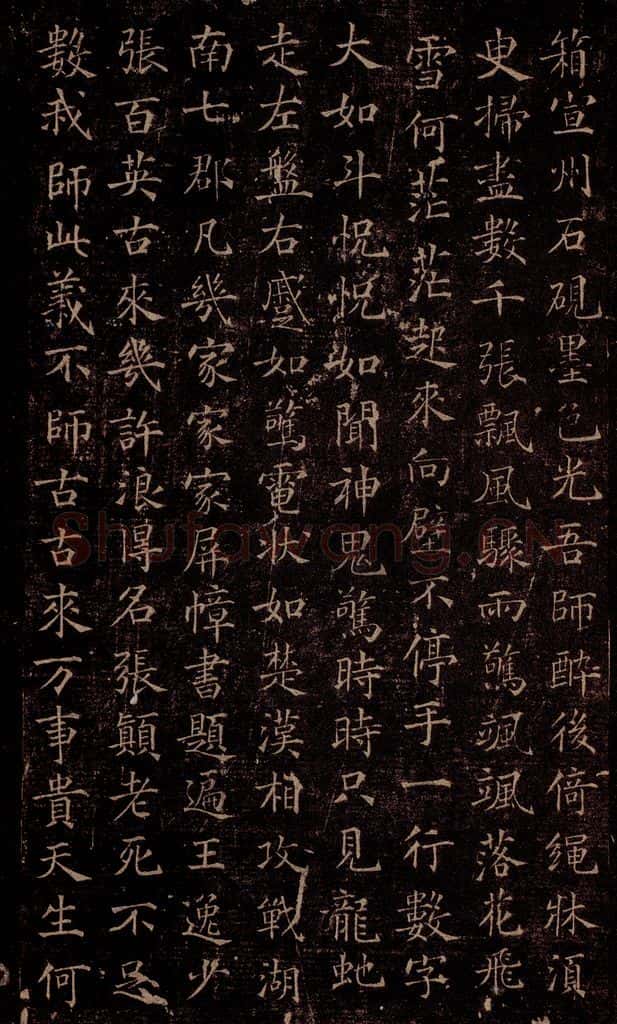 箱宣州石硯墨色光吾師醉後倚繩牀須
臾掃盡數千張飄風驟雨驚颯颯落花飛
雪何茫茫起來向壁不停手一行數字
大如斗怳怳如聞神鬼驚時時只見龍虵
走左盤右蹙如驚電狀如楚漢相攻戰湖
南七郡凡幾家家家屏幛書題遍王逸少
張百英古來幾許浪得名張顛老死不足
數我師此義不師古古來万事貴天生何
Shufawang.CN